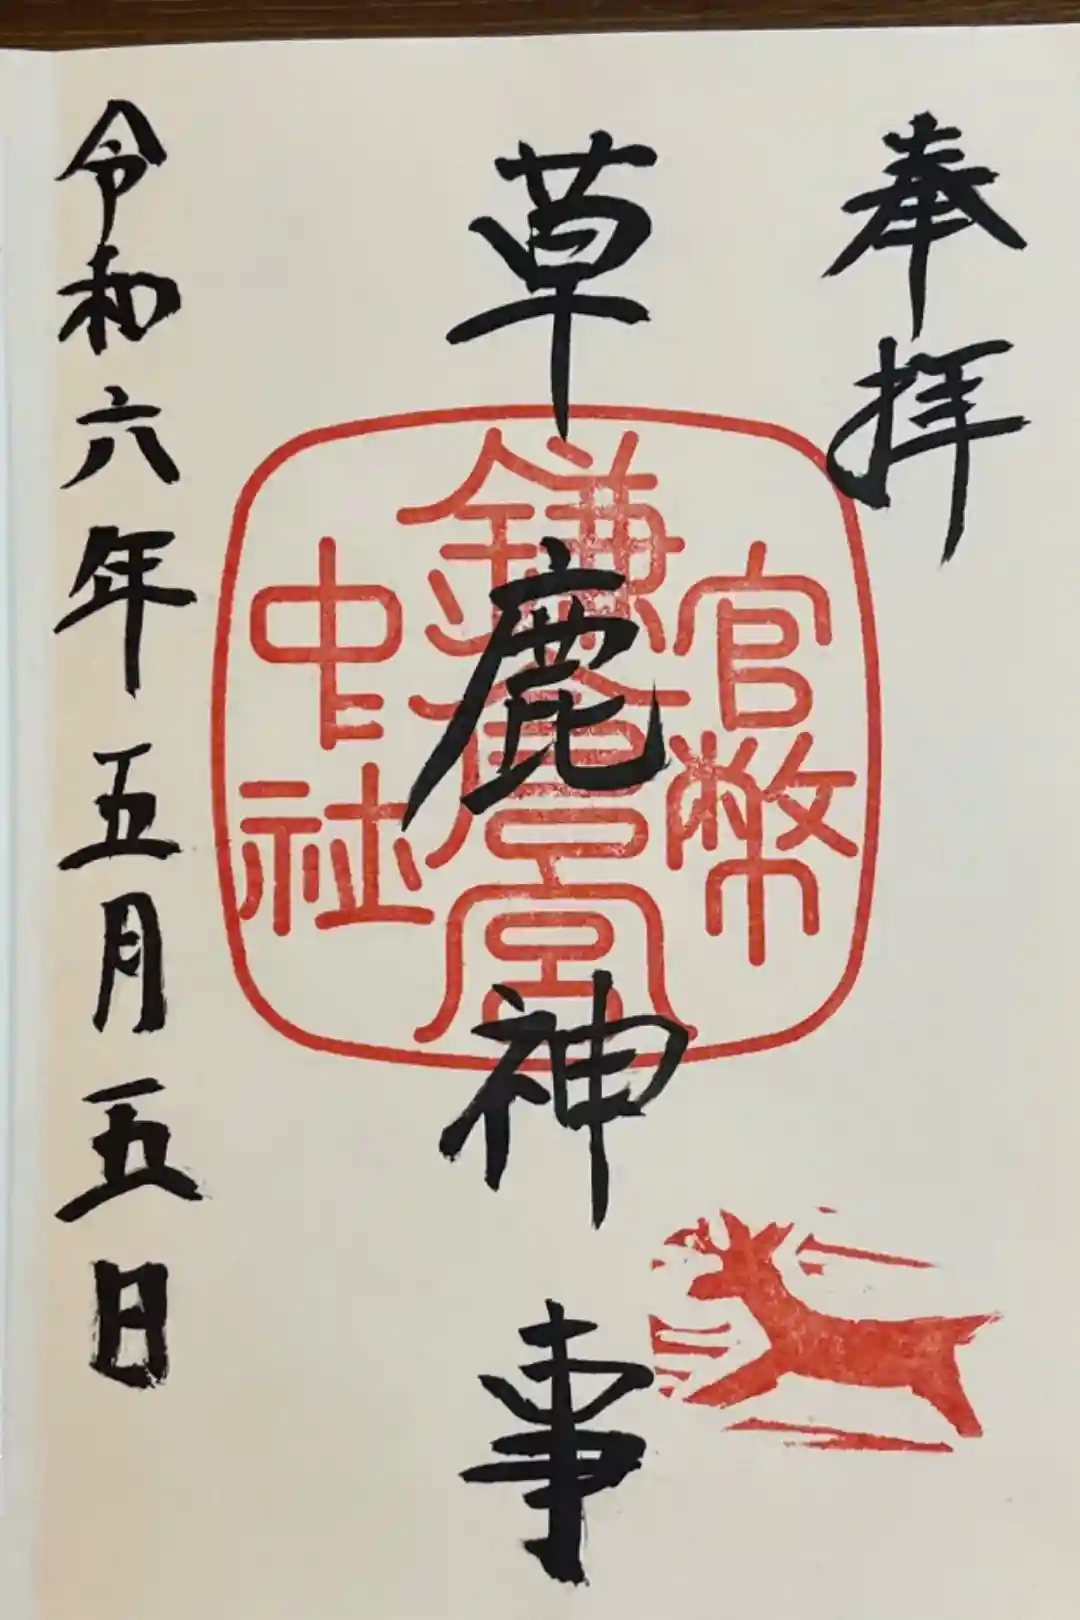 奉拝
草鹿神事
官幣
鎌倉宮
中社
令和六年五月五日